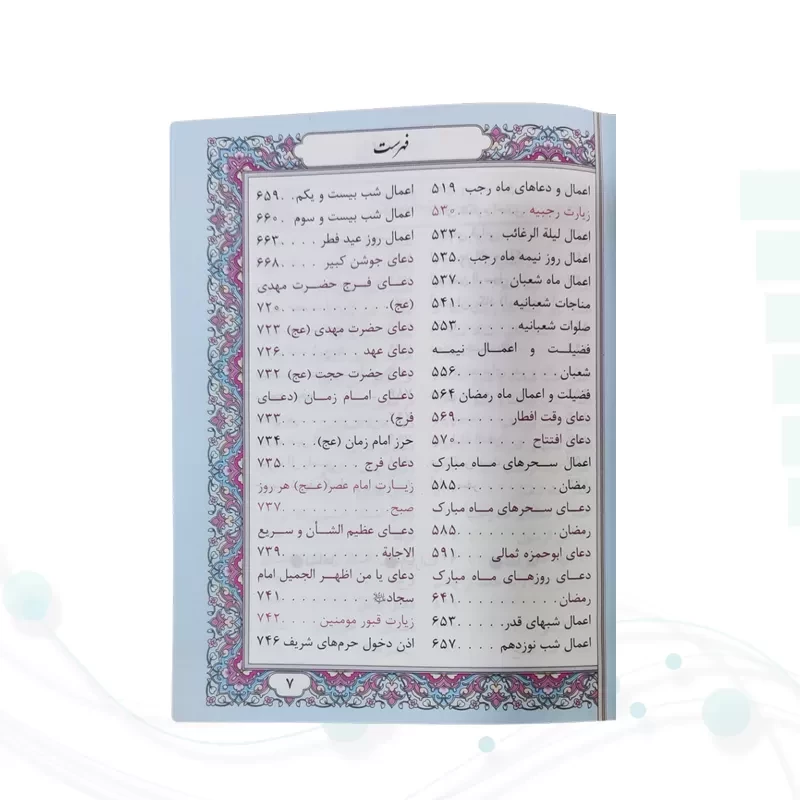 فهرست
اعمال و دعاهای ماه رجب ۵۱۹
زیارت رجبیه . . . . . . . ۵۳۰
اعمال لیلة الرغائب . . . . ۵۳۳
اعمال روز نیمه ماه رجب . ۵۳۵
اعمال ماه شعبان . . . . . ۵۳۷
مناجات شعبانیه . . . . . ۵۴۱
صلوات شعبانیه . . . . . . ۵۵۳
فضیلت و اعمال نیمه
شعبان . . . . . . . . . . ۵۵۶
فضیلت و اعمال ماه رمضان ۵۶۴
دعای وقت افطار . . . . . ۵۶۹
دعای افتتاح . . . . . . . ۵۷۰
اعمال سحرهای ماه مبارک
رمضان . . . . . . . . . . ۵۸۵
دعای سحرهای ماه مبارک
رمضان . . . . . . . . . . ۵۸۵
دعای ابوحمزه ثمالی . . . ۵۹۱
دعای روزهای ماه مبارک
رمضان . . . . . . . . . . ۶۴۱
اعمال شبهای قدر . . . . . ۶۵۳
اعمال شب نوزدهم . . . . ۶۵۷
اعمال شب بیست و یکم . . ۶۵۹
اعمال شب بیست و سوم . ۶۶۰
اعمال روز عید فطر . . . . ۶۶۳
دعای جوشن کبیر . . . . . ۶۶۸
دعای فرج حضرت مهدی
(عج) . . . . . . . . . . . ۷۲۰
دعای حضرت مهدی (عج) ۷۲۳
دعای عهد . . . . . . . . ۷۲۶
دعای حضرت حجت (عج) ۷۳۲
دعای امام زمان (دعای
فرج) . . . . . . . . . . . ۷۳۳
حرز امام زمان (عج) . . . . ۷۳۴
دعای فرج . . . . . . . . ۷۳۵
زیارت امام عصر(عج) هر روز
صبح . . . . . . . . . . . ۷۳۷
دعای عظیم الشأن و سریع
الاجابة . . . . . . . . . . ۷۳۹
دعای یا من اظهر الجمیل امام
سجاد . . . . . . . . . . ۷۴۱
زیارت قبور مومنین . . . . ۷۴۲
اذن دخول حرم‌های شریف ۷۴۶
۷